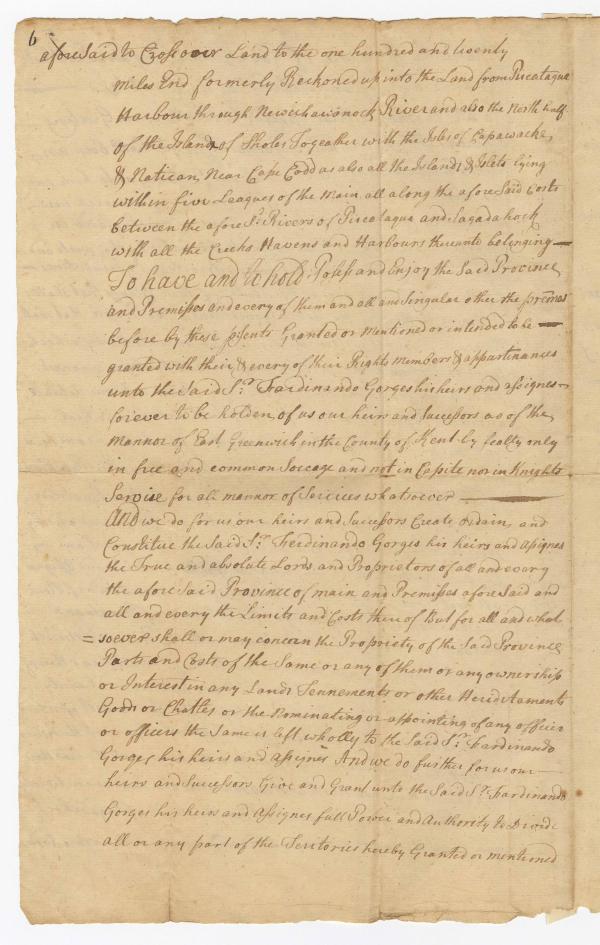 6
afore Said to Cross over Land to the one hundred and twenty
miles End formerly Reckoned up into the Land from Pucataqua
Harbour through Newichawanock River and also the North half
of the Islands of Sholes Togeather with the Isles of Capawacke
& Natican Near Cape Codd as also all the Islands & Islets lying
within five Leagues of the Main all along the afore Said Costs
between the afore Sd. Rivers of Pucataqua and Sagadahock
with all the Creeks Havens and Harbours thereunto belonging —
To have and to hold Posess and Enjoy the Said Province
and Premisses and every of them and all and Singular other the premes
before by these psents Granted or Mentioned or intended to be —
granted with their & every of their Rights members & appartinances
unto the Said Sr. Fardinando Gorges his heirs and assignes
forever to be holden of us our heirs and Successors as of the
Mannor of East Greenwich in the County of Kent by fealty only
in free and common Soccage and not in Capite nor in Knights
Servise for all mannor of Services whatsoever —
And we do for us our heirs and Successors Create Ordain and
Constitue the Said Sr. Ferdinando Gorges his heirs and assignes
the True and absolute Lords and Proprietors of all and every
the afore Said Province of main and Premisses afore Said and
all and every the Limits and Costs there of But for all and what
=soever shall or may concern the Propriety of the Said Province
Parts and Costs of the Same or any of them or any ownership
or Interest in any Lands Tennements or other Hereditaments
Goods or Chatles or the Nominating or appointing of any officer
or officers the Same is left wholly to the Said Sr. Fardinando
Gorges his heirs and assignes And we do further for us our
heirs and Successors Give and Grant unto the Said Sr. Fardinando
Gorges his heirs and Assignes full Power and Authority to Divide
all or any part of the Territories hereby Granted or mentioned